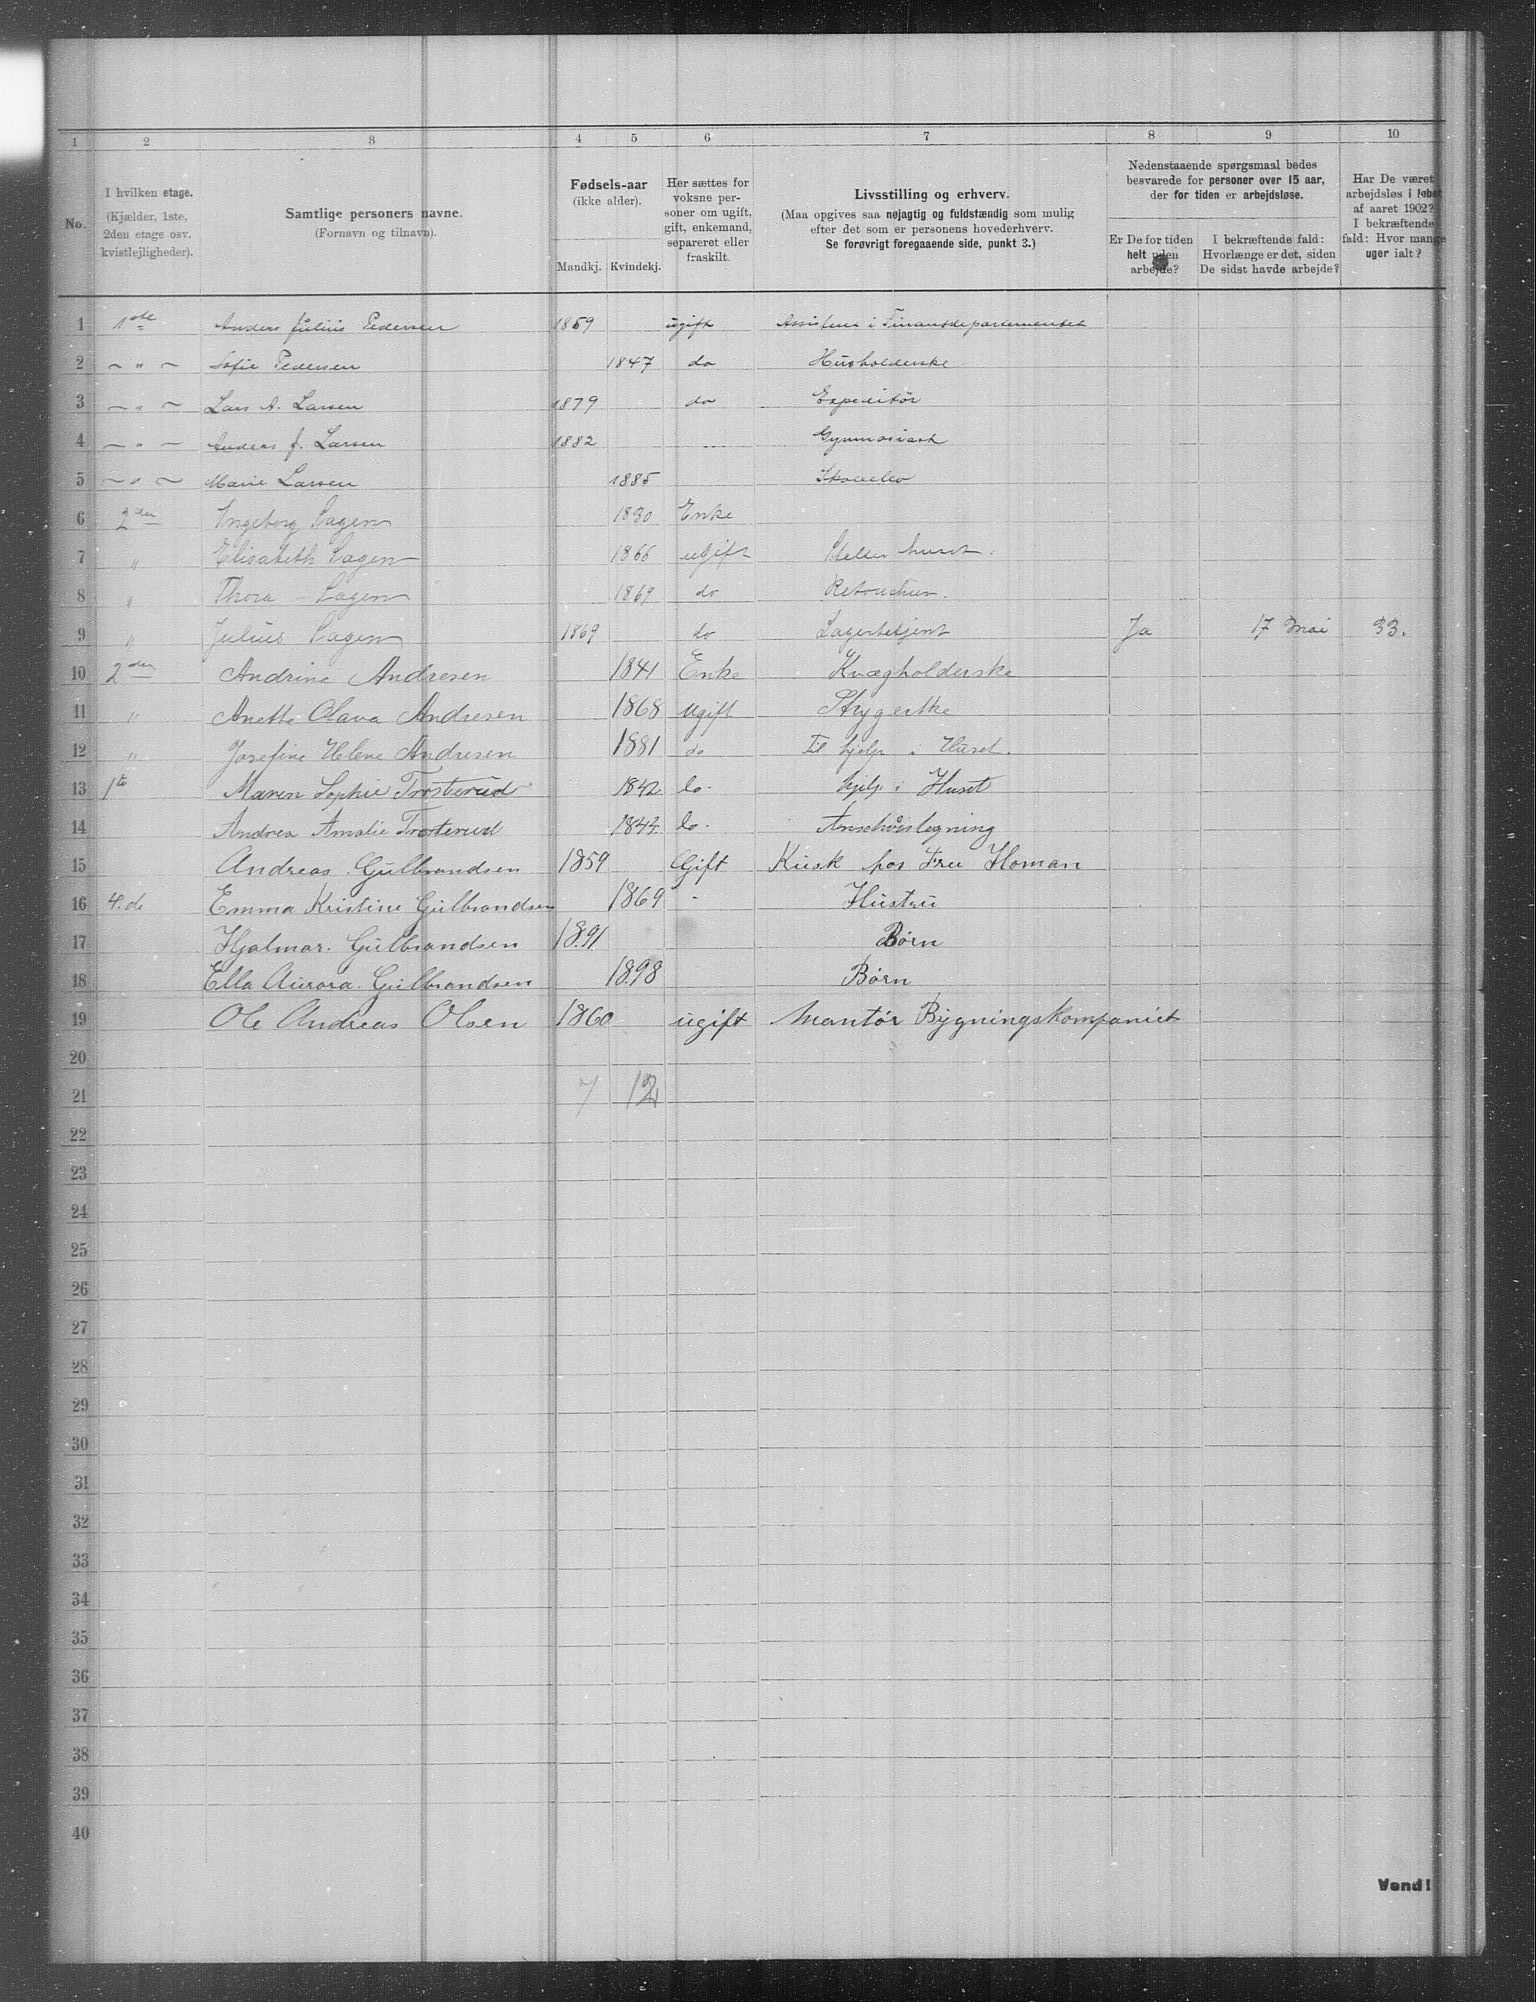 1 2 3 4 5 6 7 8 9 10
No.
I hvilken etage.
(Kjælder, 1ste,
2den etage osv.
kvistlejligheder).
Samtlige personers navne.
(Fornavn og tilnavn).
Fødsels-aar
(ikke alder).
Mandkj. Kvindekj.
Her sættes for
voksne per-
soner om ugift,
gift, enkemand,
separeret eller
fraskilt.
Livsstilling og erhverv.
(Maa opgives saa nøjagtig og fuldstændig som mulig
efter det som er personens hovederhverv.
Se forøvrigt foregaaende side, punkt 3.)
Nedenstaaende spørgsmaal bedes
besvarede for personer over 15 aar,
der for tiden er arbejdsløse.
Er De for tiden
helt uden
arbejde?
I bekræftende fald:
Hvorlænge er det, siden
De sidst havde arbejde?
Har De været
arbejdsløs i løbet
af aaret 1902?
I bekræftende
fald: Hvor mange
uger ialt?
1 1ste Anders Julius Pedersen 1859 ugift Assistent i Finansdepartementet
2 — " — Sofie Pedersen 1847 do Husholderske
3 — " — Lars A. Larsen 1879 do Expeditør
4 — " — Anders J. Larsen 1882 Gymnasiast
5 — " — Marie Larsen 1885 Skoleelev
6 2den Ingeborg Sagen 1830 Enke
7 " Elisabeth Sagen 1866 ugift Steller huset.
8 " Thora Sagen 1869 do
9 " Julius Sagen 1869 do Lagerbetjent Ja 17 Mai 33.
10 2den Andrine Andresen 1841 Enke Kvægholderske
11 " Anette Olava Andresen 1868 Ugift Strygerske
12 " Josefine Helene Andresen 1881 do Til hjelp i Huset.
13 1te Maren Sophie Trosterud 1842 do. hjelp i Huset
14 Andrea Amalie Trosterud 1844 do.
15 Andreas Gulbrandsen 1859 Gift Kusk hos Fru Homan
16 4.de Emma Kristine Gulbrandsen 1869 " Hustru
17 Hjalmar. Gulbrandsen 1891 Børn
18 Ella Aurora. Gulbrandsen 1898 Børn
19 Ole Andreas Olsen 1860 ugift Montør Bygningskompaniet
20
21 7 12
22
23
24
25
26
27
28
29
30
31
32
33
34
35
36
37
38
39
40
Vend!